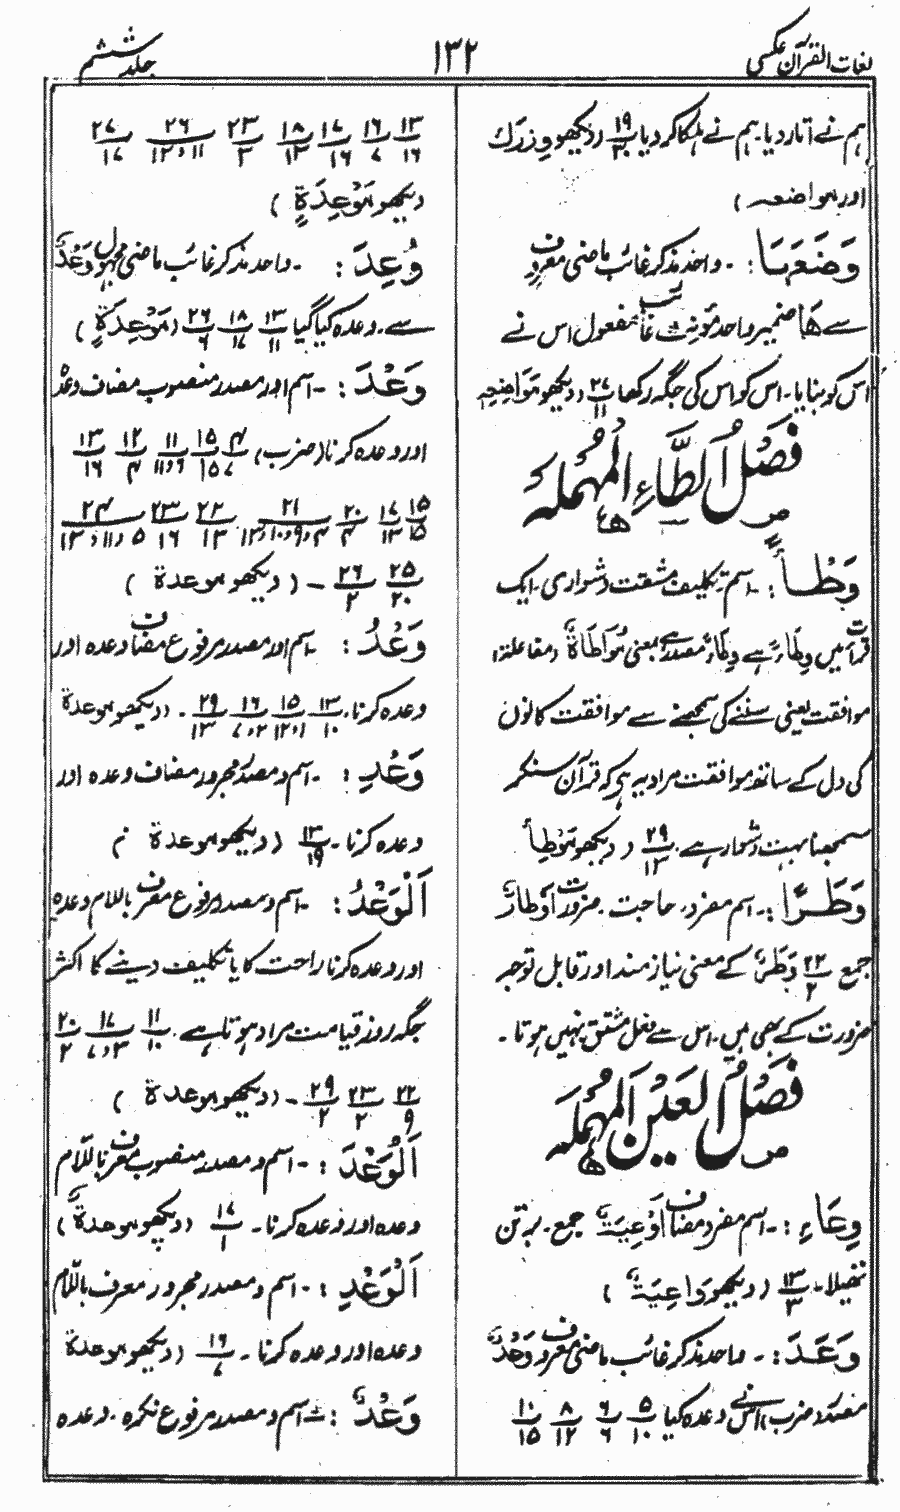 لغات القرآن عکسی
۱۳۲
جلد ششم
ہم نے اتار دیا۔ ہم نے ہلکا کر دیا ۱۹/۳۰ (دیکھو وِزْرَكَ
اور مواضعہ)
وَضَعَهَا: ۔ واحد مذکر غائب ماضی معروف
سے هَا ضمیر واحد مؤنث غائب مفعول اس نے
اس کو بنایا۔ اس کو اس کی جگہ رکھا ۲۷/۱۱ (دیکھو مَوَاضِعِہٖ
فَصْلُ الطَّاءِ الْمُهْمَلَه
وَطْـأً: ۔ اسم۔ تکلیف مشقت دشواری۔ ایک
قرأت میں وِطَاءً ہے وِطَاءً مصدر ہے بمعنی مُوَاطَاةً (مفاعلۃ)
موافقت یعنی سننے کی سمجھنے سے موافقت کانوں
کی دل کے ساتھ موافقت مراد یہ ہے کہ قرآن سنکر
سمجھنا بہت دشوار ہے ۲۹/۱۳ (دیکھو مَوْطِأً
وَطَرًا: ۔ اسم مفرد، حاجت۔ ضرورت اَوْطَارٌ
جمع ۲۲/۲ وَطَرٌ کے معنی نیاز مند اور قابل توجہ
ضرورت کے بھی ہیں۔ اس سے فعل مشتق نہیں ہوتا۔
فَصْلُ الْعَيْنِ الْمُهْمَلَه
وِعَاءِ: ۔ اسم مفرد مضاف اَوْعِيَةٌ جمع۔ برتن
تھیلا۔ ۱۳/۳ (دیکھو وَاعِيَةٌ)
وَعَدَ: ۔ واحد مذکر غائب ماضی معروف وَعْدٌ
مصدر (ضرب) اس نے وعدہ کیا ۵/۱۰ ۶/۶ ۸/۱۲ ۱۰/۱۵
۱۳/۱۶ ۱۶/۷ ۱۷/۱۶ ۱۸/۱۳ ۲۳/۳ ۲۶/۱۱،۱۲ ۲۷/۱۷
دیکھو مَوْعِدَةٍ)
وُعِدَ: ۔ واحد مذکر غائب ماضی مجہول وَعْدٌ
سے۔ وعدہ کیا گیا ۱۳/۱۱ ۱۸/۱۷ ۲۶/۶ (مَوْعِدَةٍ)
وَعْدَ: ۔ اسم اور مصدر منصوب مضاف وعْد
اور وعدہ کرنا (ضرب) ۴/۷ ۱۵/۱۵ ۱۱/۶،۱۱ ۱۲/۴ ۱۳/۱۶
۱۵/۱۵ ۱۷/۱۳ ۲۰/۴ ۲۱/۴،۹،۱۰،۱۳ ۲۳/۱۳ ۲۳/۱۶ ۲۴/۵،۱۱،۱۳
۲۵/۲۰ ۲۶/۲ ۔ (دیکھو موعدة)
وَعْدُ: ۔ اسم اور مصدر مرفوع مضاف وعدہ اور
وعدہ کرنا، ۱۳/۱۰ ۱۵/۱،۱۲ ۱۶/۲،۷ ۲۹/۱۳ ۔ (دیکھو موعدة
وَعْدِ: ۔ اسم و مصدر مجرور مضاف وعدہ اور
وعدہ کرنا۔ ۱۳/۱۹ (دیکھو موعدة)
اَلْوَعْدُ: ۔ اسم و مصدر مرفوع معرف باللام وعدہ
اور وعدہ کرنا راحت کا یا تکلیف دینے کا اکثر
جگہ روز قیامت مراد ہوتا ہے ۱۱/۱۰ ۱۷/۳،۷ ۲۰/۲
۲۲/۹ ۲۳/۲ ۲۹/۲ ۔ (دیکھو موعدة)
اَلْوَعْدَ: ۔ اسم و مصدر منصوب معرف باللّام
وعدہ اور وعدہ کرنا۔ ۱۷/۱ (دیکھو موعدة)
اَلْوَعْدِ: ۔ اسم و مصدر مجرور معرف باللّام
وعدہ اور وعدہ کرنا۔ ۱۶/۷ (دیکھو موعدة
وَعْدٌ: ۔ اسم و مصدر مرفوع نکرہ۔ وعدہ